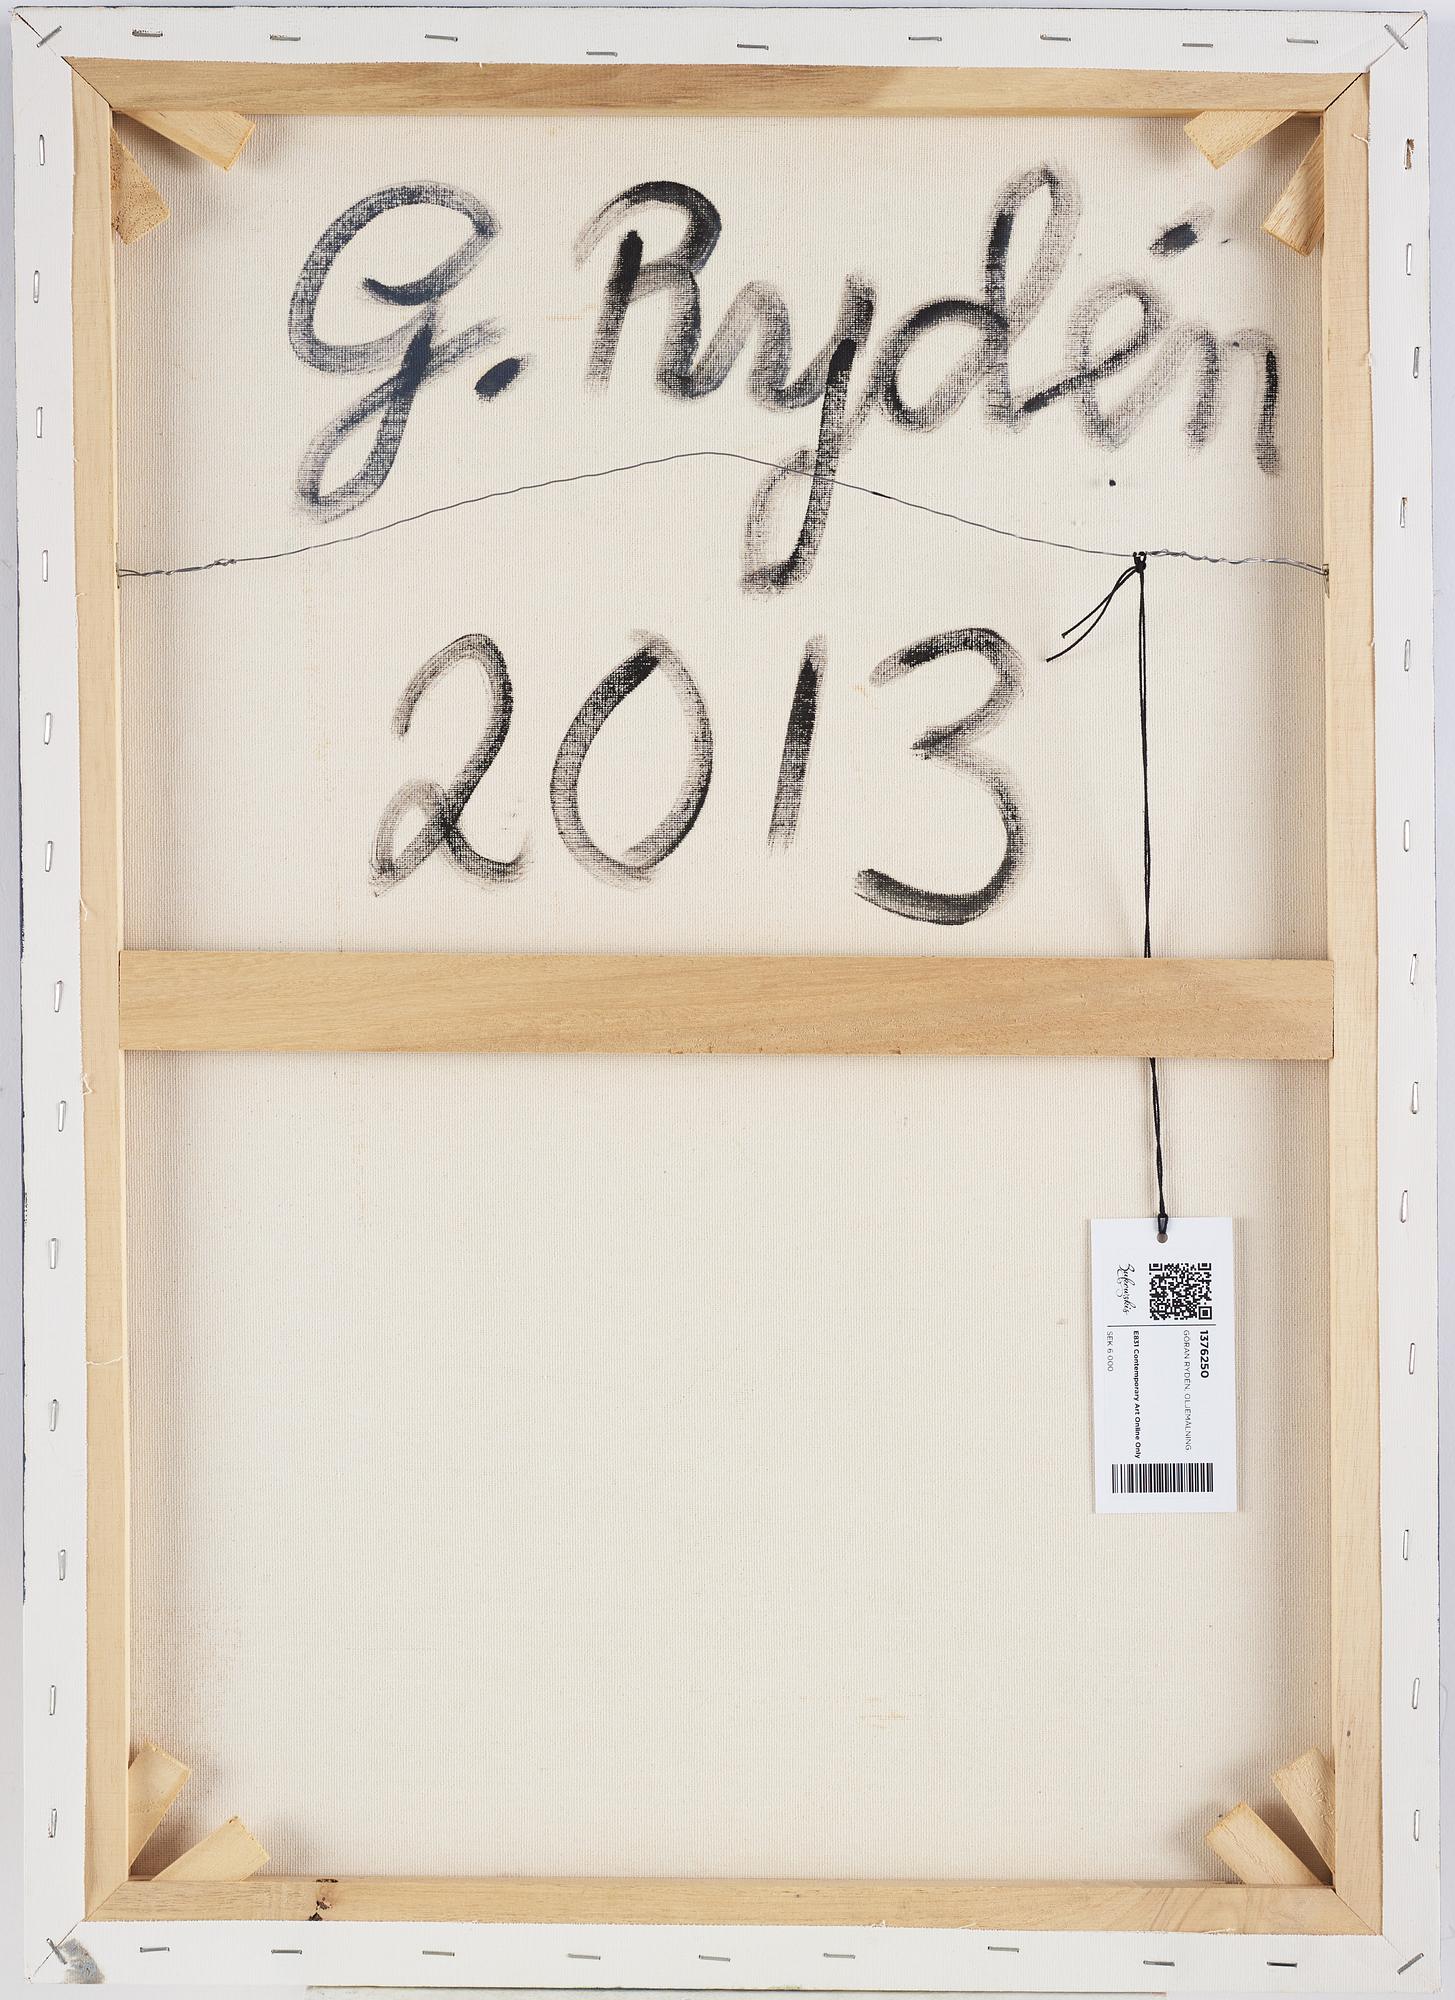 G. Rydén
2013
Bukowskis
1376250
GÖRAN RYDÉN, OLJEMÅLNING
E831 Contemporary Art Online Only
SEK 6 000